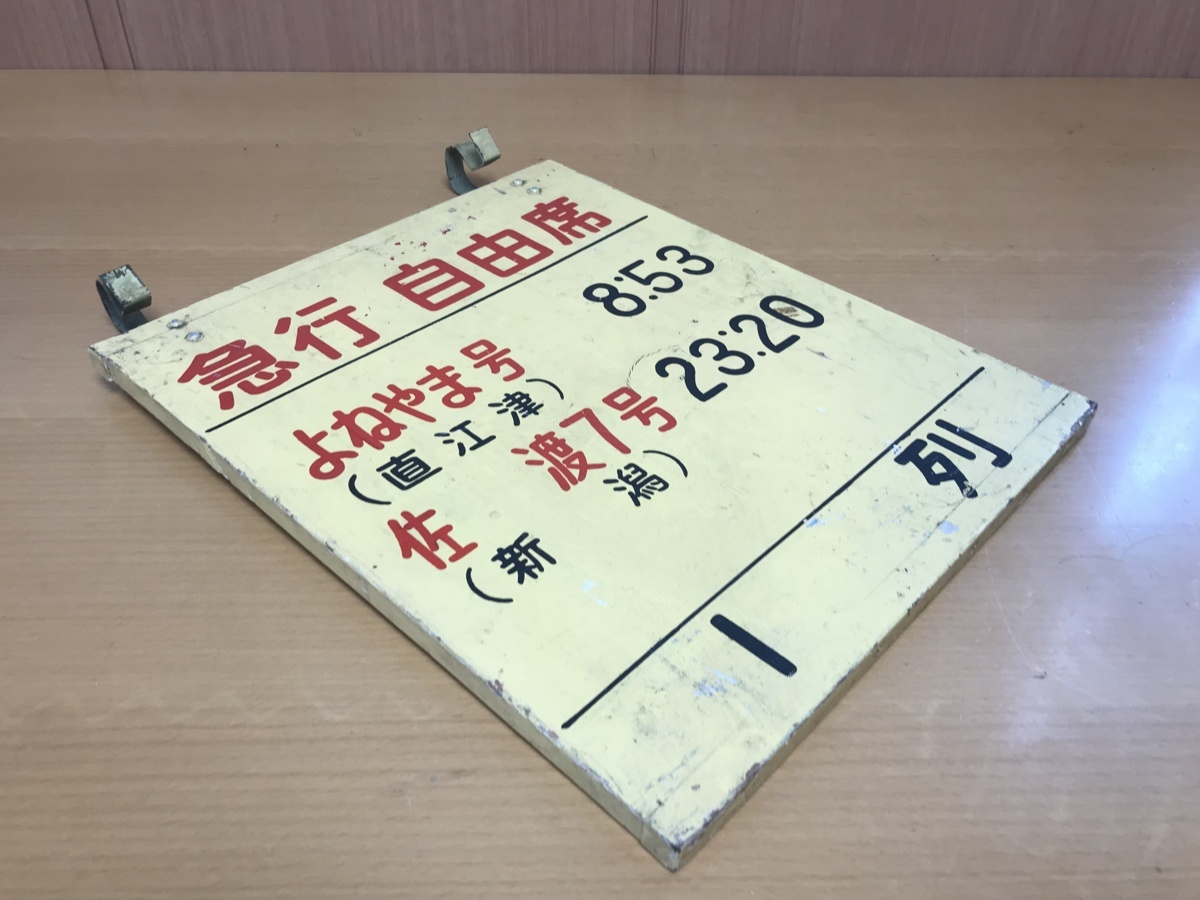 急行 自由席
よねやま号 8:53
(直江津)
佐渡7号 23:20
(新潟)
1列